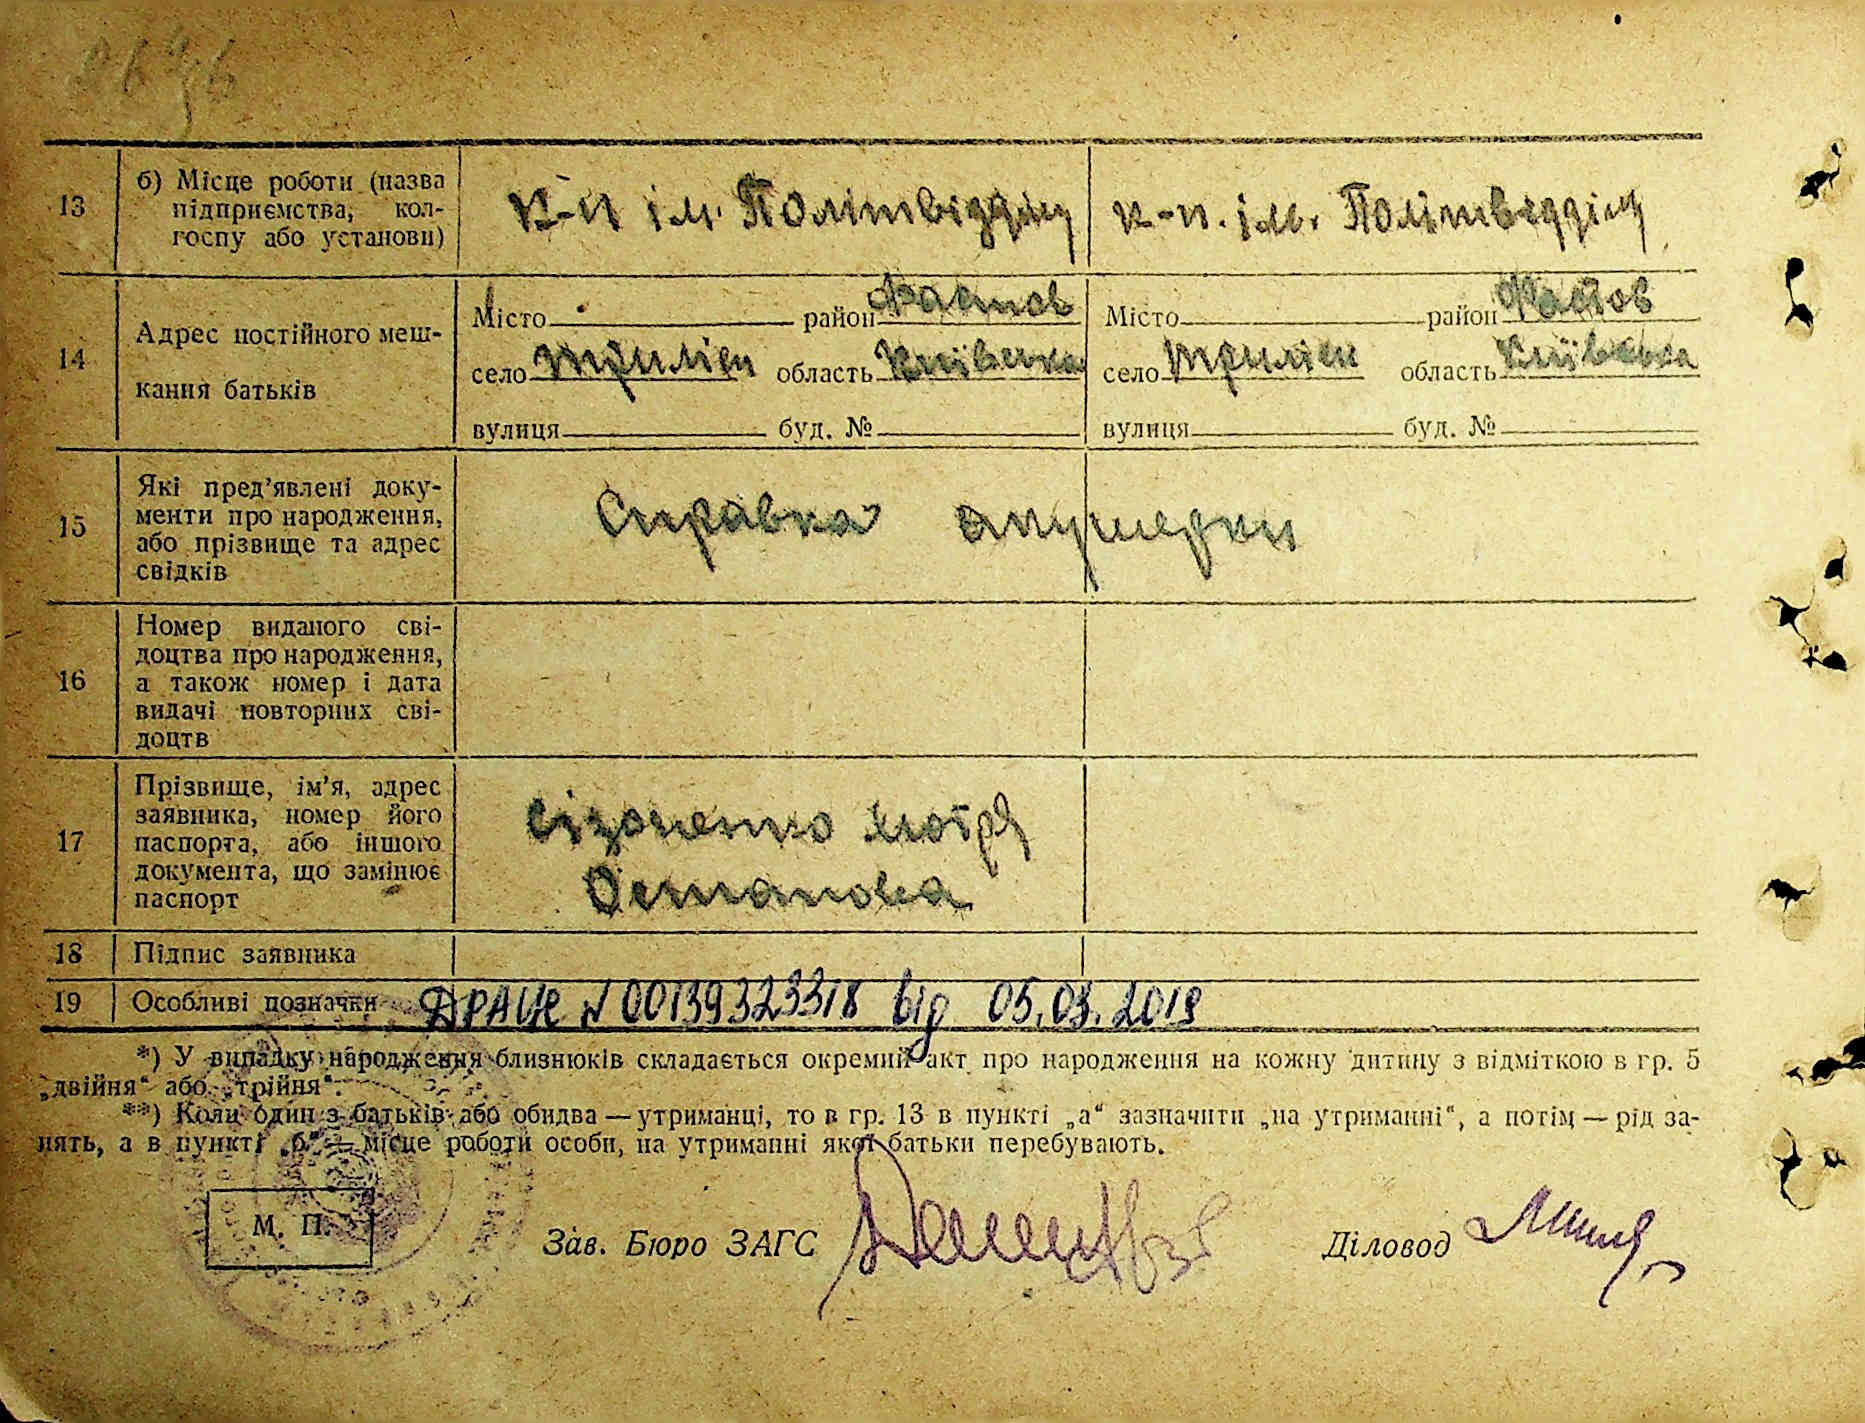 13
б) Місце роботи (назва
підприємства, кол-
госпу або установи)
к-п ім. Політвідділу
к-п. ім. Політвідділу
14
Адрес постійного меш-
кання батьків
Місто район Фастов
село Триліси область Київська
вулиця буд. №
Місто район Фастов
село Триліси область Київська
вулиця буд. №
15
Які пред'явлені доку-
менти про народження,
або прізвище та адрес
свідків
Справка акушерки
16
Номер виданого сві-
доцтва про народження,
а також номер і дата
видачі повторних сві-
доцтв
17
Прізвище, ім'я, адрес
заявника, номер його
паспорта, або іншого
документа, що замінює
паспорт
Сізоненко
18
Підпис заявника
19
Особливі позначки ДРАЦС N 00139323318 від 05.03.2019
*) У випадку народження близнюків складається окремий акт про народження на кожну дитину з відміткою в гр. 5
„двійня“ або „трійня“.
**) Коли один з батьків або обидва — утриманці, то в гр. 13 в пункті „а“ зазначити „на утриманні“, а потім — рід за-
нять, а в пункті „б“ — місце роботи особи, на утриманні якої батьки перебувають.
М. П.
Зав. Бюро ЗАГС
Діловод